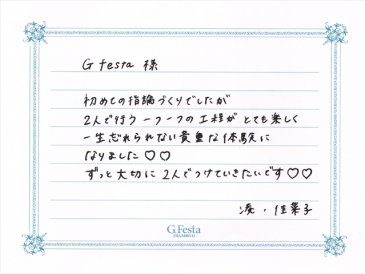 G festa 様
初めての指輪づくりでしたが
2人で行う一つ一つの工程がとても楽しく
一生忘れられない貴重な体験に
なりました♡♡
ずっと大切に2人でつけていきたいです♡♡
涼・佳菜子
G.Festa